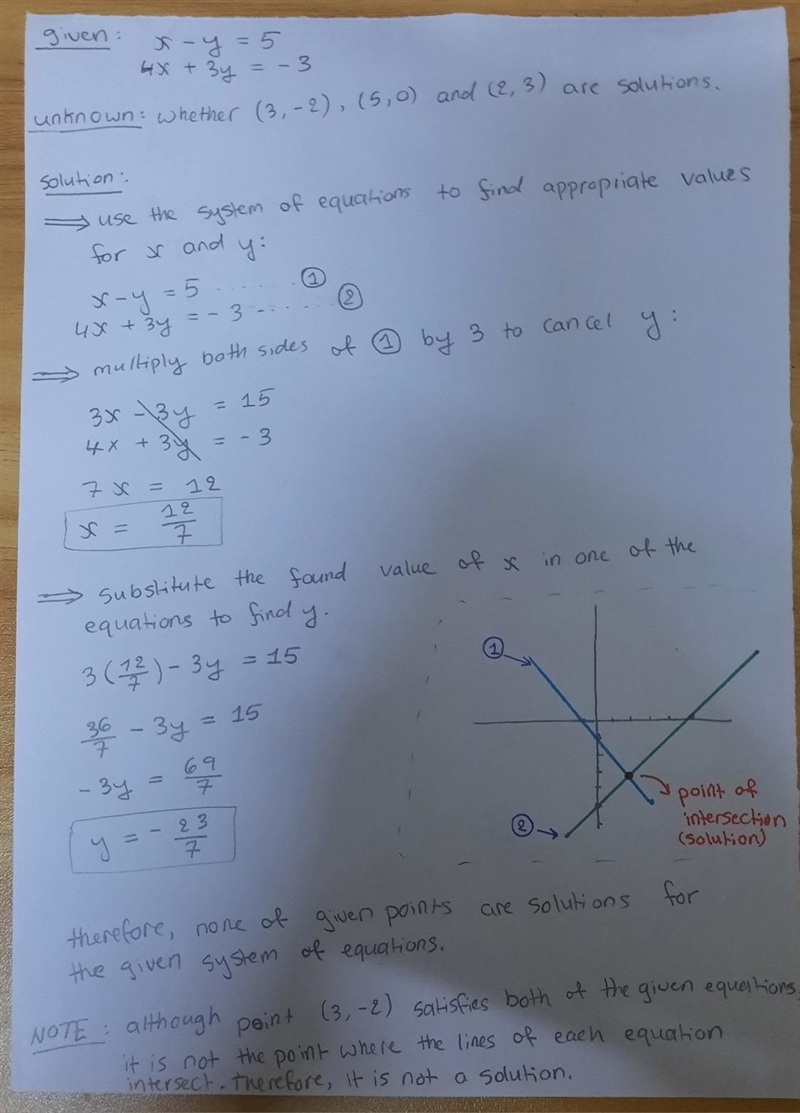 given: x - y = 5
4x + 3y = - 3
unknown: whether (3, -2), (5, 0) and (2, 3) are solutions.
solution:
⟹ use the system of equations to find appropriate values
for x and y:
x - y = 5 ...... ①
4x + 3y = - 3 ...... ②
⟹ multiply both sides of ① by 3 to cancel y:
3x - 3y = 15
4x + 3y = - 3
7x = 12
x = 12/7
⟹ substitute the found value of x in one of the
equations to find y.
3(12/7) - 3y = 15
36/7 - 3y = 15
- 3y = 69/7
y = - 23/7
①
②
point of
intersection
(solution)
therefore, none of given points are solutions for
the given system of equations.
NOTE: although point (3, -2) satisfies both of the given equations
it is not the point where the lines of each equation
intersect. therefore, it is not a solution.